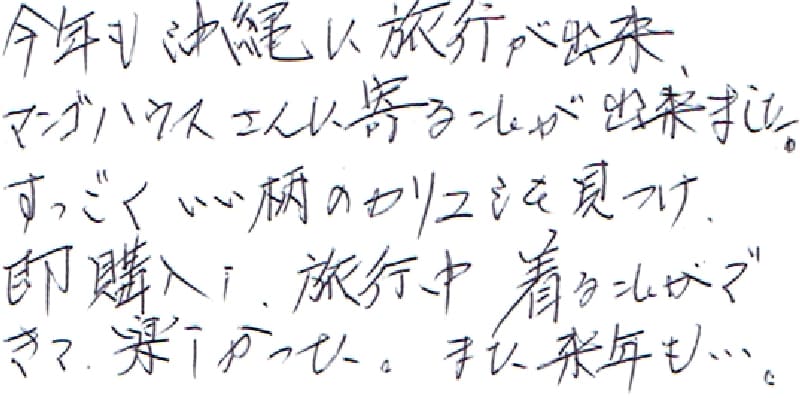 今年も沖縄に旅行が出来、
マンゴハウスさんに寄ることが出来ました。
すっごくいい柄のカリユシを見つけ、
即購入し、旅行中着ることがで
きて、楽しかった。また来年も…。